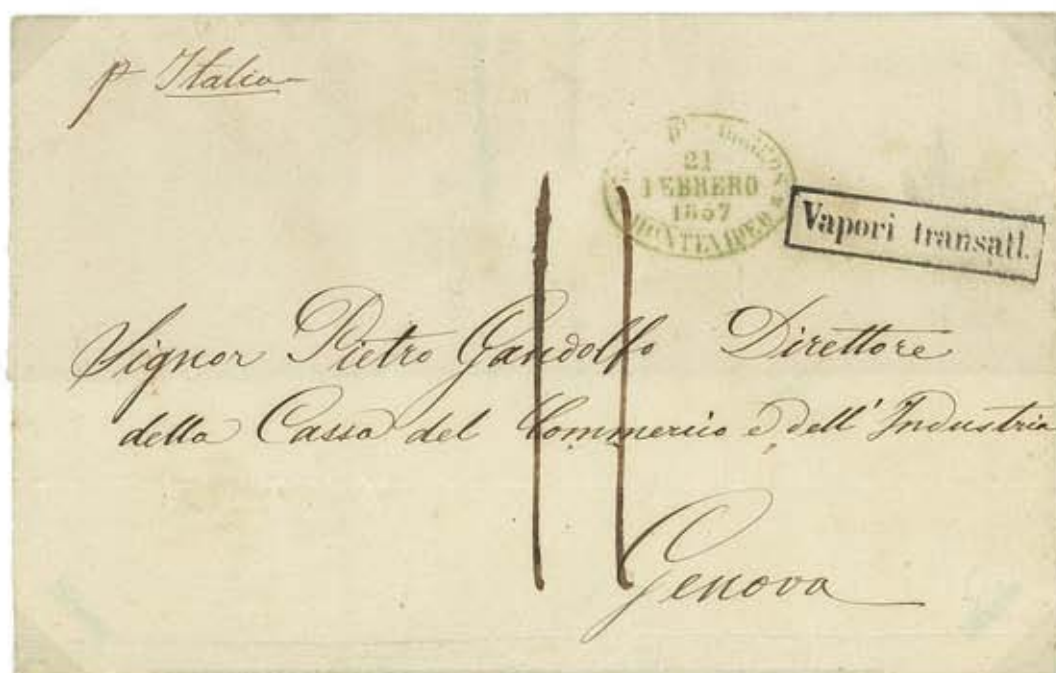 p Italia
21
FEBRERO
1857
MONTEVIDEO
Vapori transatl.
11
Signor Pietro Gandolfo Direttore
della Cassa del Commercio e dell' Industria
Genova